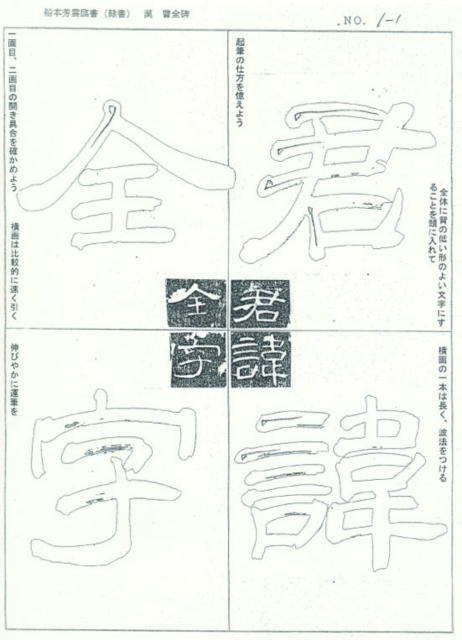 船本芳雲臨書（隸書） 漢 曹全碑
NO. 1-1
全体に背の低い形のよい文字にす
ることを頭に入れて
起筆の仕方を憶えよう
君
横画の一本は長く、波法をつける
諱
一画目、二画目の開き具合を確かめよう
横画は比較的に速く引く
全
伸びやかに運筆を
字
君
諱
全
字